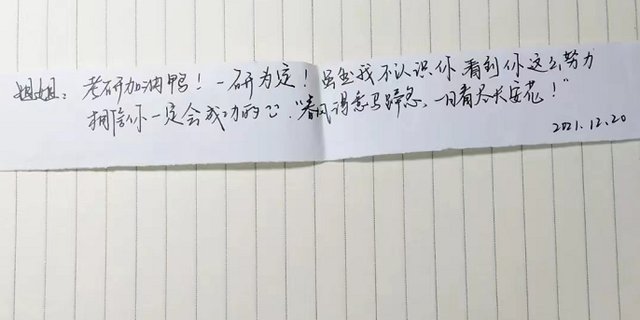 姐姐：考研加油鸭！一研为定！虽然我不认识你 看到你这么努力
相信你一定会成功的。“春风得意马蹄急，一日看尽长安花！”
2021.12.20